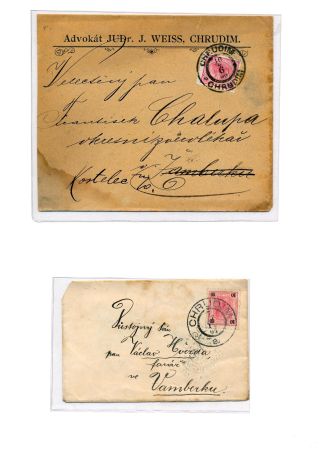 Advokát JUDr. J. WEISS, CHRUDIM.
CHRUDIM
CHRUDIM
Velectěný pan
František Chalupa
Kostelec n/O. Vamberku
CHRUDIM
Důstojný pán
pan Václav Hovrda,
farář
ve
Vamberku.